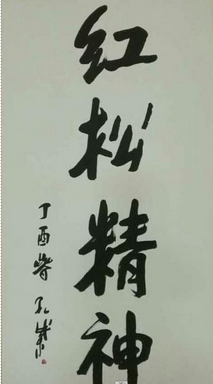 红松精神
丁酉 孔